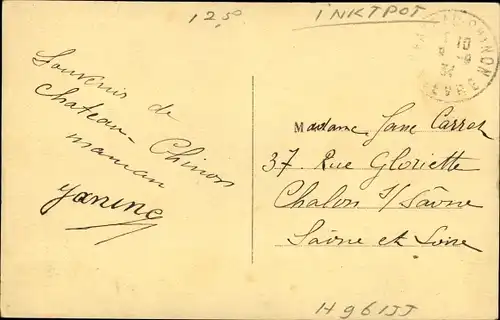 12.50
INKTPOT
CHATEAU-CHINON
10
8-9
34
NIEVRE
Souvenir de
Chateau-Chinon
maman
yanine
Madame Jane Carrez
37 Rue Gloriette
Chalon s/Saône
Saône et Loire
H961JJ